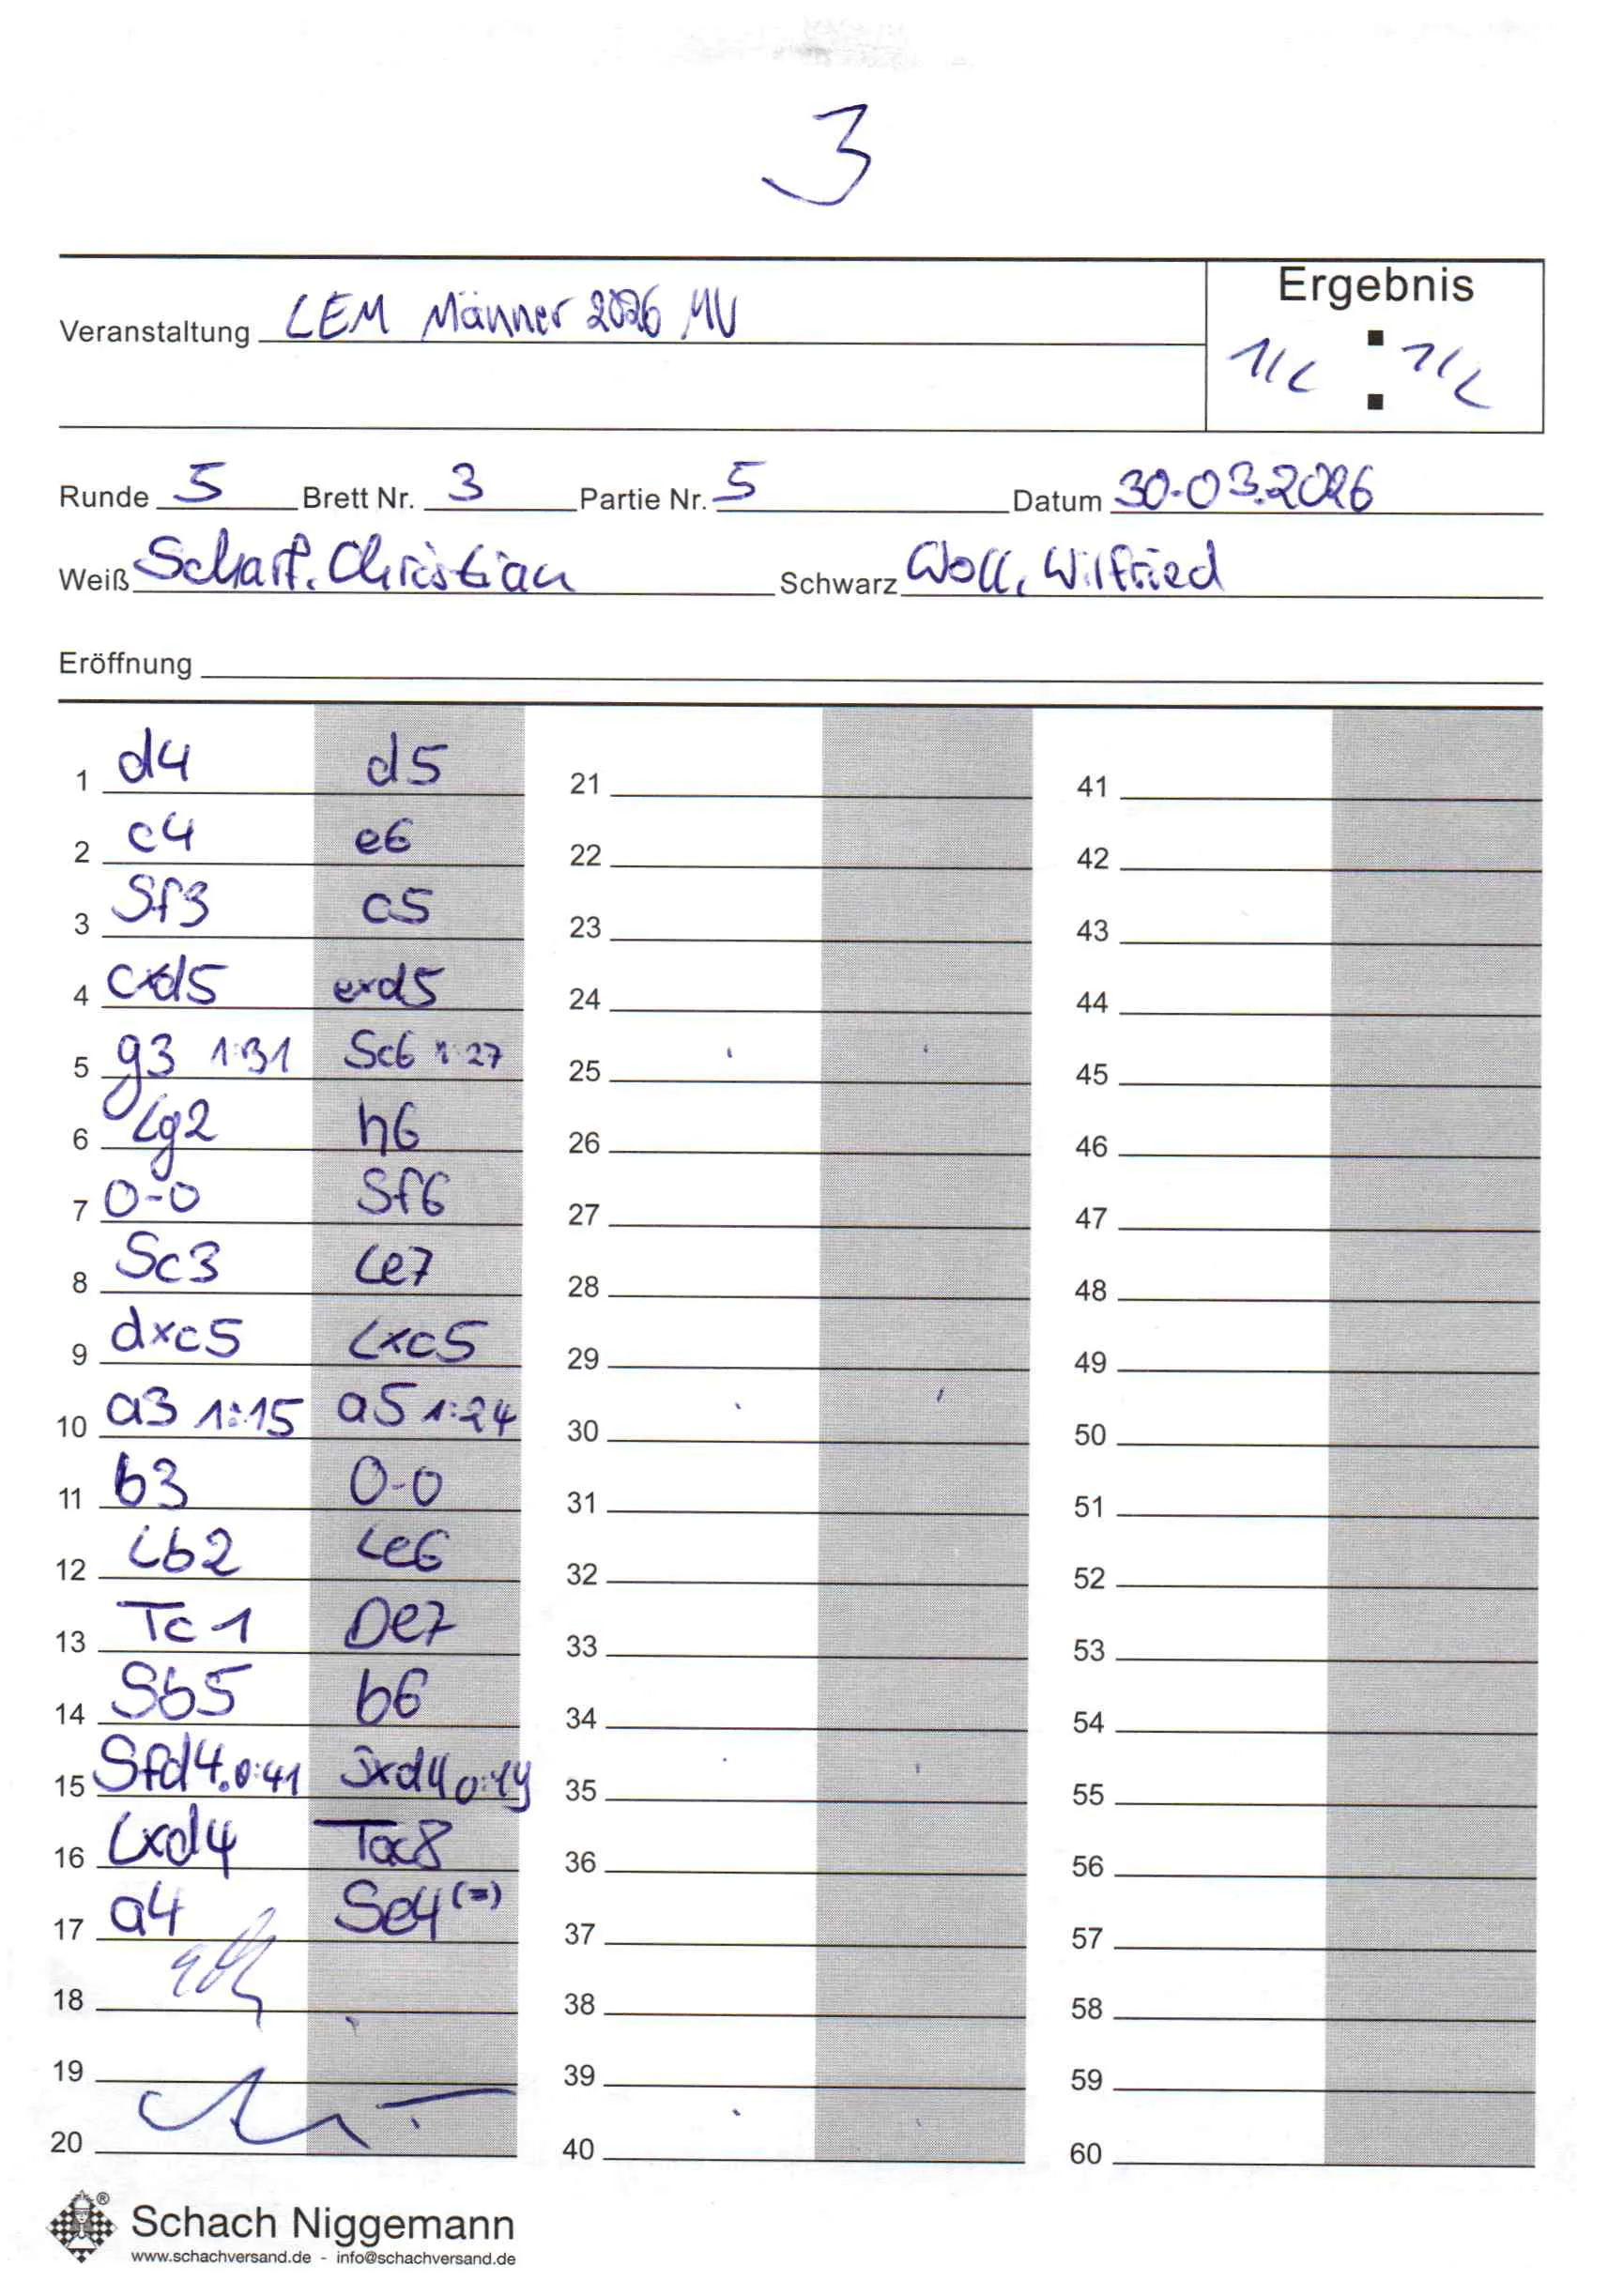 3
Ergebnis
Veranstaltung LEM Männer 2026 MV
1/2 : 1/2
Runde 5 Brett Nr. 3 Partie Nr. 5 Datum 30.03.2026
Weiß Scharf, Christian Schwarz Woll, Wilfried
Eröffnung
1 d4 d5 21 41
2 c4 e6 22 42
3 Sf3 c5 23 43
4 cxd5 exd5 24 44
5 g3 1:31 Sc6 1:27 25 45
6 Lg2 h6 26 46
7 0-0 Sf6 27 47
8 Sc3 Le7 28 48
9 dxc5 Lxc5 29 49
10 a3 1:15 a5 1:24 30 50
11 b3 0-0 31 51
12 Lb2 Le6 32 52
13 Tc1 De7 33 53
14 Sb5 b6 34 54
15 Sfd4 0:41 Sxd4 35 55
16 Lxd4 Tac8 36 56
17 a4 Se4 (=) 37 57
18 38 58
19 39 59
20 40 60
Schach Niggemann
www.schachversand.de - info@schachversand.de